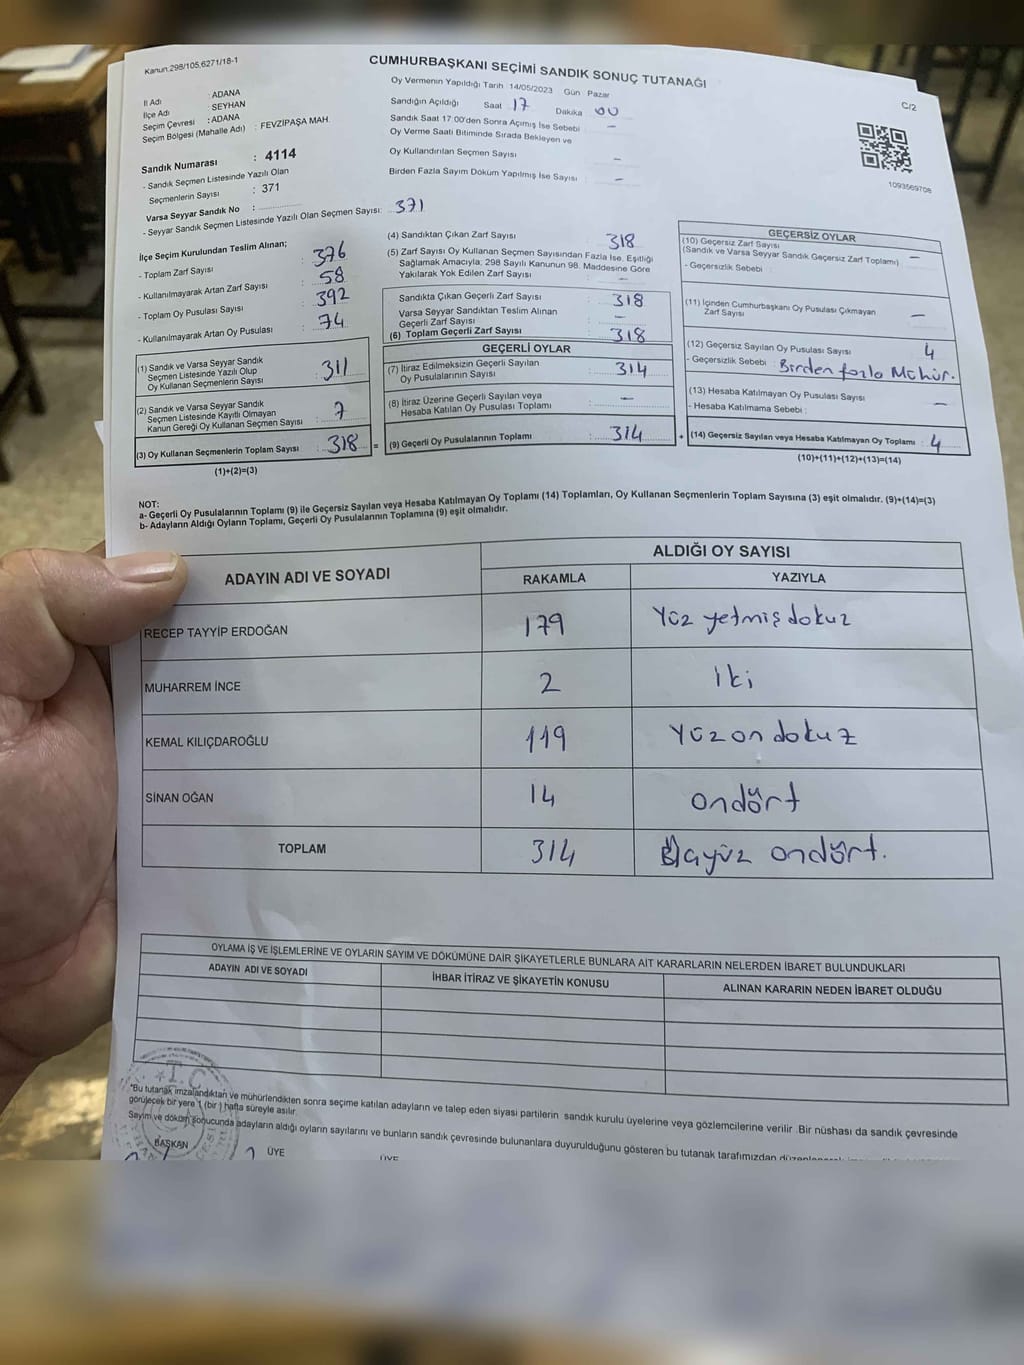 Kanun:298/105,6271/18-1
CUMHURBAŞKANI SEÇİMİ SANDIK SONUÇ TUTANAĞI
C/2
1093569708
İl Adı : ADANA
İlçe Adı : SEYHAN
Seçim Çevresi : ADANA
Seçim Bölgesi (Mahalle Adı) : FEVZİPAŞA MAH.
Sandık Numarası : 4114
- Sandık Seçmen Listesinde Yazılı Olan
Seçmenlerin Sayısı : 371
Varsa Seyyar Sandık No :
- Seyyar Sandık Seçmen Listesinde Yazılı Olan Seçmen Sayısı: 371
Oy Vermenin Yapıldığı Tarih 14/05/2023 Gün Pazar
Sandığın Açıldığı Saat 17 Dakika 00
Sandık Saat 17 00'den Sonra Açımış İse Sebebi -
Oy Verme Saati Bitiminde Sırada Bekleyen ve
Oy Kullandırılan Seçmen Sayısı -
Birden Fazla Sayım Döküm Yapılmış İse Sayısı -
İlçe Seçim Kurulundan Teslim Alınan;
- Toplam Zarf Sayısı : 376
- Kullanılmayarak Artan Zarf Sayısı : 58
- Toplam Oy Pusulası Sayısı : 392
- Kullanılmayarak Artan Oy Pusulası : 74
(1) Sandık ve Varsa Seyyar Sandık
Seçmen Listesinde Yazılı Olup
Oy Kullanan Seçmenlerin Sayısı : 311
(2) Sandık ve Varsa Seyyar Sandık
Seçmen Listesinde Kayıtlı Olmayan
Kanun Gereği Oy Kullanan Seçmen Sayısı : 7
(3) Oy Kullanan Seçmenlerin Toplam Sayısı : 318 =
(1)+(2)=(3)
(4) Sandıktan Çıkan Zarf Sayısı : 318
(5) Zarf Sayısı Oy Kullanan Seçmen Sayısından Fazla İse, Eşitliği
Sağlamak Amacıyla, 298 Sayılı Kanunun 98. Maddesine Göre
Yakılarak Yok Edilen Zarf Sayısı : -
Sandıkta Çıkan Geçerli Zarf Sayısı : 318
Varsa Seyyar Sandıktan Teslim Alınan
Geçerli Zarf Sayısı : -
(6) Toplam Geçerli Zarf Sayısı : 318
GEÇERLİ OYLAR
(7) İtiraz Edilmeksizin Geçerli Sayılan
Oy Pusulalarının Sayısı : 314
(8) İtiraz Üzerine Geçerli Sayılan veya
Hesaba Katılan Oy Pusulası Toplamı : -
(9) Geçerli Oy Pusulalarının Toplamı : 314 +
GEÇERSİZ OYLAR
(10) Geçersiz Zarf Sayısı
(Sandık ve Varsa Seyyar Sandık Geçersiz Zarf Toplamı) -
- Geçersizlik Sebebi :
(11) İçinden Cumhurbaşkanı Oy Pusulası Çıkmayan
Zarf Sayısı -
(12) Geçersiz Sayılan Oy Pusulası Sayısı 4
- Geçersizlik Sebebi : Birden fazla Mühür.
(13) Hesaba Katılmayan Oy Pusulası Sayısı -
- Hesaba Katılmama Sebebi :
(14) Geçersiz Sayılan veya Hesaba Katılmayan Oy Toplamı : 4
(10)+(11)+(12)+(13)=(14)
NOT:
a- Geçerli Oy Pusulalarının Toplamı (9) ile Geçersiz Sayılan veya Hesaba Katılmayan Oy Toplamı (14) Toplamları, Oy Kullanan Seçmenlerin Toplam Sayısına (3) eşit olmalıdır. (9)+(14)=(3)
b- Adayların Aldığı Oyların Toplamı, Geçerli Oy Pusulalarının Toplamına (9) eşit olmalıdır.
ADAYIN ADI VE SOYADI
ALDIĞI OY SAYISI
RAKAMLA YAZIYLA
RECEP TAYYİP ERDOĞAN 179 Yüz yetmiş dokuz
MUHARREM İNCE 2 iki
KEMAL KILIÇDAROĞLU 119 Yüz on dokuz
SİNAN OĞAN 14 ondört
TOPLAM 314 üçyüz ondört.
OYLAMA İŞ VE İŞLEMLERİNE VE OYLARIN SAYIM VE DÖKÜMÜNE DAİR ŞİKAYETLERLE BUNLARA AİT KARARLARIN NELERDEN İBARET BULUNDUKLARI
ADAYIN ADI VE SOYADI İHBAR İTİRAZ VE ŞİKAYETİN KONUSU ALINAN KARARIN NEDEN İBARET OLDUĞU
T.C
*Bu tutanak imzalandıktan ve mühürlendikten sonra seçime katılan adayların ve talep eden siyasi partilerin sandık kurulu üyelerine veya gözlemcilerine verilir. Bir nüshası da sandık çevresinde
görülecek bir yere 1 (bir) hafta süreyle asılır.
Sayım ve döküm sonucunda adayların aldığı oyların sayılarını ve bunların sandık çevresinde bulunanlara duyurulduğunu gösteren bu tutanak tarafımızdan
BAŞKAN ÜYE ÜYE